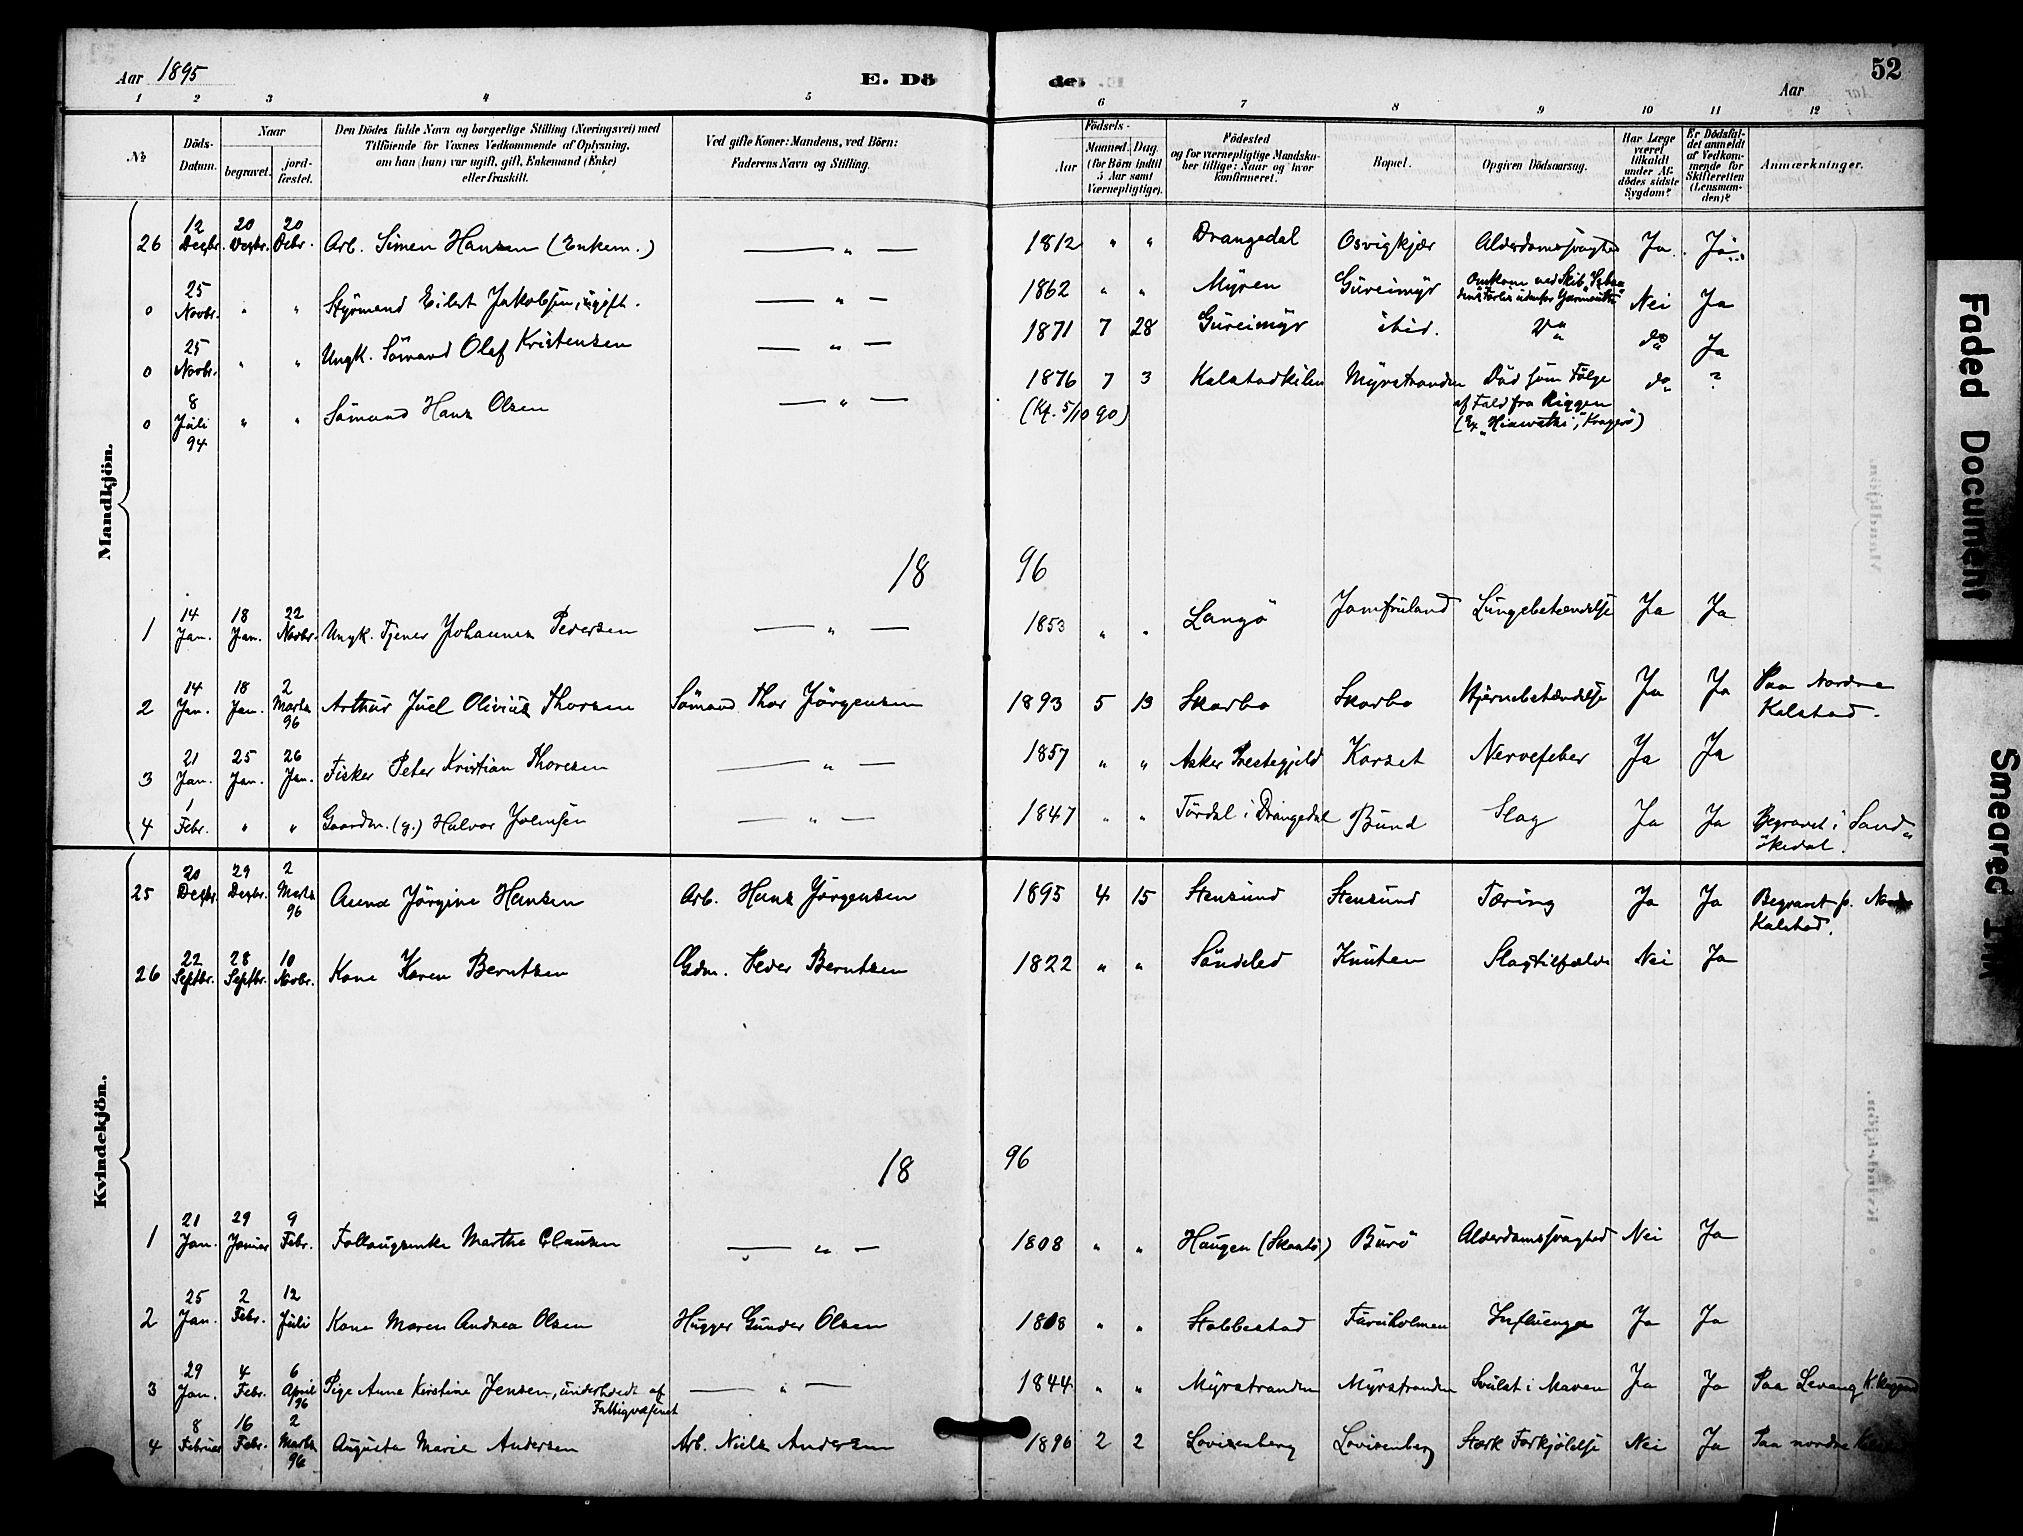 Aar 1895 E. Dö de. Aar 52
1 2 3 4 5 6 7 8 9 10 11 12
No Döds-Datum. Naar begravet. jordfæstet. Den Dödes fulde Navn og borgerlige Stilling (Næringsvei) med Tilföiende for Voxnes Vedkommende af Oplysning, om han (hun) var ugift, gift, Enkemand (Enke) eller fraskilt. Ved gifte Koner: Mandens, ved Börn: Faderens Navn og Stilling. Födsels- Aar Maaned. Dag. (for Börn indtil 5 Aar samt Værnepligtige). Födested og for værnepligtige Mandskaber tillige: Naar og hvor konfirmeret. Bopæl. Opgiven Dödsaarsag. Har Læge været tilkaldt under Afdödes sidste Sygdom? Er Dödsfaldet anmeldt af Vedkommende for Skifteretten (Lensmanden)? Anmærkninger.
Mandkjön.
26 12 Dezbr. 20 Dezbr. 20 Debr. Arb. Simen Hansen (Enkem.) — " — 1812 " " Drangedal Osvigkjær Alderdomssvaghed Ja Ja
0 25 Novbr. " " Styrmand Eilert Jakobsen, ugift. — " — 1862 " " Myren Gureimyr Omkom ved Skib Forlis udenfor Yarmouth Nei Ja
0 25 Novbr. " " Ungk. Sömand Olaf Kristensen — " — 1871 7 28 Gureimyr ibid. do Ja
0 8 Juli 94 " " Sömand Hans Olsen — " — 1876 7 3 Kalstadkilen Myrstranden Död som Fölge do ?
(Kf. 5/10 90) af Fald fra Riggen
(Ex "Hiawatha", Kragerö)
18 96
1 14 Jan. 18 Jan. 22 Novbr. Ungk. Tjener Johannes Pedersen — " — 1853 " " Langö Jomfruland Lungebetændelse Ja Ja
2 14 Jan. 18 Jan. 2 Marts 96 Arthur Juel Olivius Thorsen Sömand Thor Jörgensen 1893 5 13 Skarbo Skarbo Hjernebetændelse Ja Ja Paa Nordre Kalstad.
3 21 Jan. 25 Jan. 26 Jan. Fisker Peter Kristian Thoresen — " — 1857 " " Asker Prestegjeld Korset Nervefeber Ja Ja
4 1 Febr. " " Gaardm. (g.) Halvor Joensen — " — 1847 " " Tördal i Drangedal Bund Slag Ja Ja Begravet i Sandökedal.
Kvindekjön.
25 20 Dezbr. 29 Dezbr. 2 Marts 96 Anna Jörgine Hansen Arb. Hans Jörgensen 1895 4 15 Stensund Stensund Tæring Ja Ja Begravet p. Nordre Kalstad.
26 22 Septbr. 28 Septbr. 10 Novbr. Kone Karen Berntsen Gdm. Peder Berntsen 1822 " " Söndeled Knuten Slagtilfælde Nei Ja
18 96
1 21 Jan. 29 Januar 9 Febr. Fattigenke Marthe Clausen — " — 1808 " " Haugen (Skaatö) Burö Alderdomssvaghed Nei Ja
2 25 Jan. 2 Febr. 12 Juli Kone Maren Andrea Olsen Hugger Gunder Olsen 1808 " " Stabbestad Furuholmen Influenza Ja Ja
3 29 Jan. 4 Febr. 6 April 96 Pige Anne Kirstine Jensen, underholdt af Fattigvæsenet — " — 1844 " " Myrstranden Myrstranden Svulst i Maven Ja Ja Paa Levang
4 8 Februar 16 Febr. 2 Marts 96 Augusta Marie Andersen Arb. Niels Andersen 1896 2 2 Lovisenberg Lovisenberg Stærk Forkjölelse Nei Ja Paa nordre
Faded Document
Smeared Ink